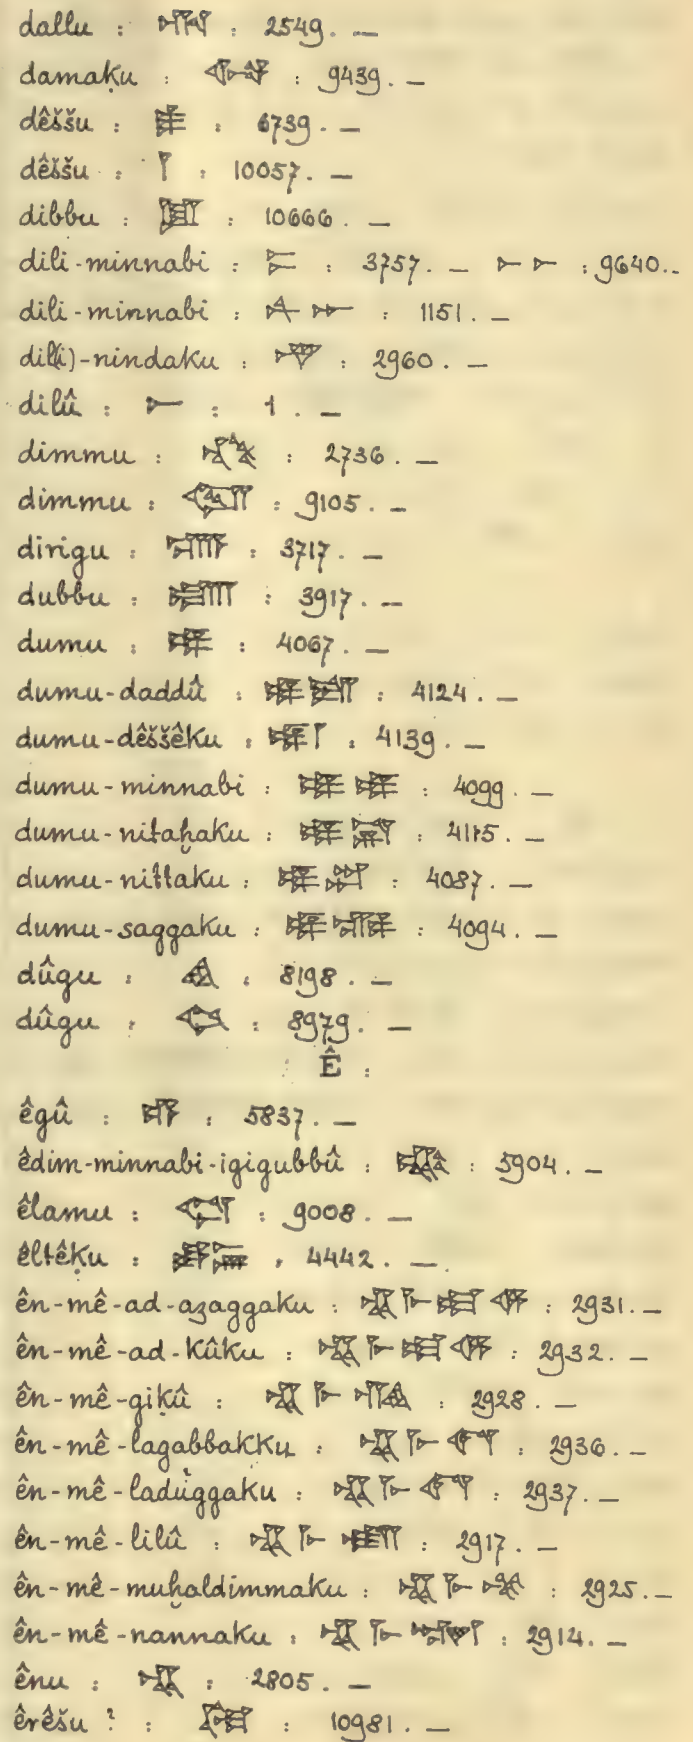 dallu : : 2549. —
damaḳu : : 9439. —
dêššu : : 6739. —
dêššu : 𒁹 : 10057. —
dibbu : : 10666. —
dili-minnabi : : 3757. — 𒀸 𒀸 : 9640. —
dili-minnabi : : 1151. —
dil(i)-nindaku : : 2960. —
dilû : 𒀸 : 1. —
dimmu : : 2736. —
dimmu : : 9105. —
dirigu : : 3717. —
dubbu : 𒁾 : 3917. —
dumu : 𒌉 : 4067. —
dumu-daddû : 𒌉 : 4124. —
dumu-dêššêku : 𒌉𒁹 : 4139. —
dumu-minnabi : 𒌉 𒌉 : 4099. —
dumu-nitaḫaku : 𒌉 : 4115. —
dumu-nittaku : 𒌉 : 4087. —
dumu-saggaku : 𒌉𒊕 : 4094. —
dûgu : : 8198. —
dûgu : : 8979. —
Ê :
êgû : : 5837. —
êdim-minnabi-igigubbû : : 5904. —
êlamu : : 9008. —
êltêḳu : : 4442. —
ên-mê-ad-azaggaku : 𒂗 𒈨 𒀜 𒆬 : 2931. —
ên-mê-ad-kûku : 𒂗 𒈨 𒀜 𒆬 : 2932. —
ên-mê-giḳû : 𒂗 𒈨 : 2928. —
ên-mê-lagabbakku : 𒂗 𒈨 : 2936. —
ên-mê-laduggaku : 𒂗 𒈨 : 2937. —
ên-mê-lilû : 𒂗 𒈨 : 2917. —
ên-mê-muḫaldimmaku : 𒂗 𒈨 𒈬 : 2925. —
ên-mê-nannaku : 𒂗 𒈨 : 2914. —
ênu : 𒂗 : 2805. —
êrêšu ? : : 10981. —